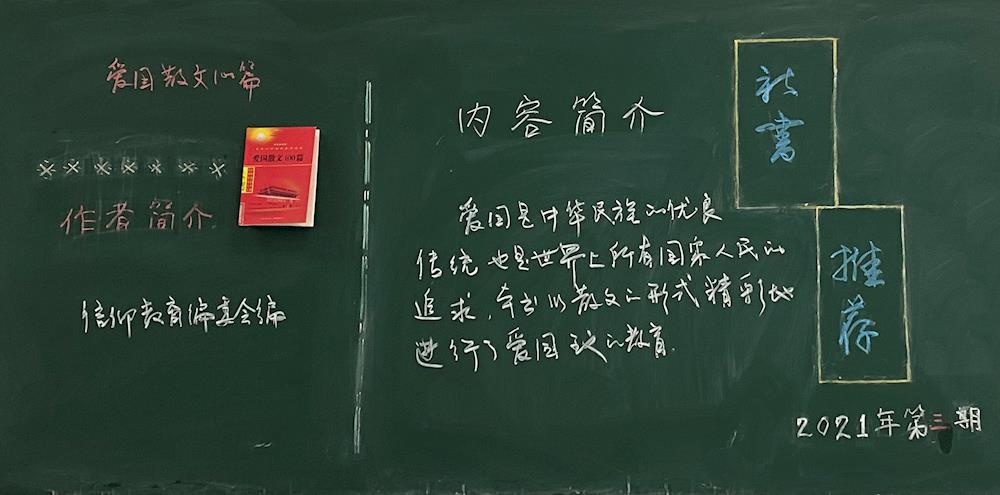 爱国散文100篇
爱国散文100篇
作者简介
信仰教育编委会编
内容简介
爱国是中华民族的优良
传统也是世界上所有国家人民的
追求,本书以散文的形式精彩地
进行了爱国主义的教育.
新书
推荐
2021年第三期